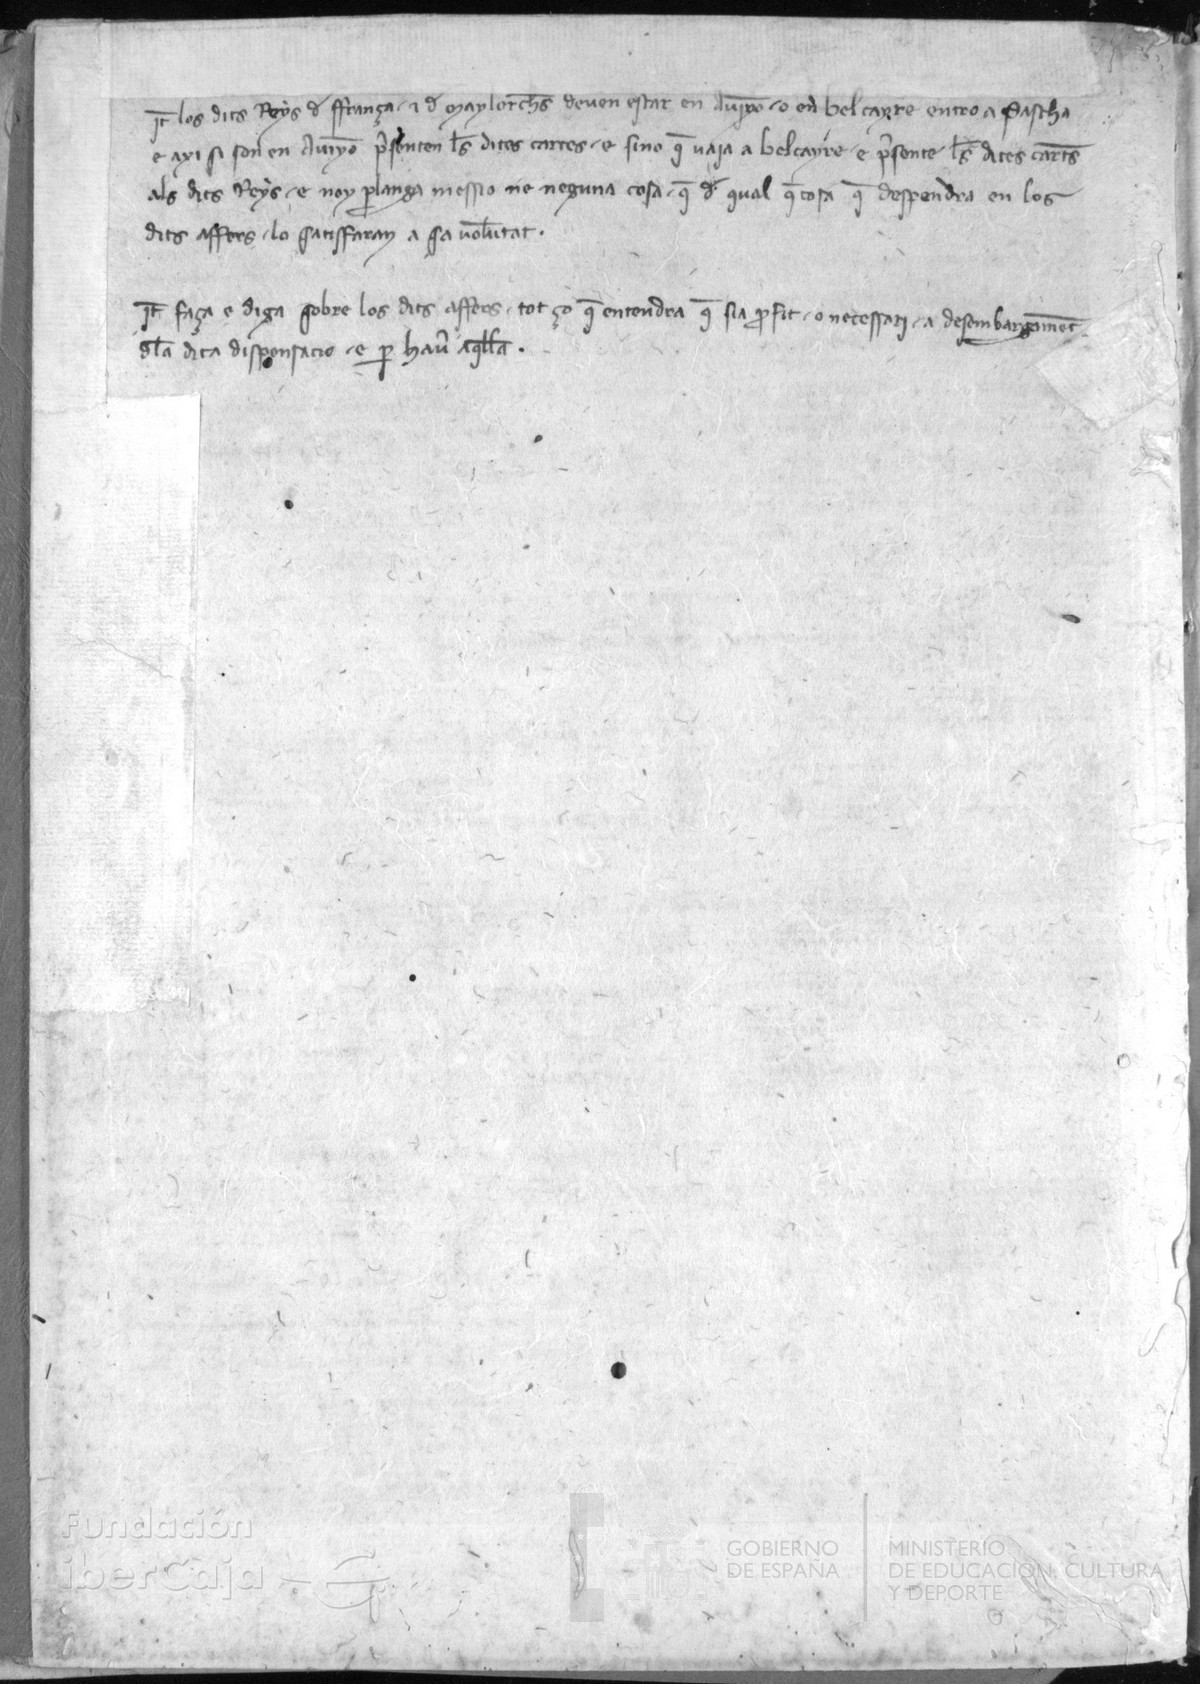 It̄ los dits Reys d̄ ffrança · ⁊ d̄ Maylorch̄s deven estar en Auiyo · o en belcayre entro a Pascha
e axi si son en Auiyo p̄senten l̄s dites cartes · e sino q̄ vaja a belcayre · e p̄sente l̄s dites cart̄s
als dits Reys · e noy planga messio ne neguna cosa · q̄ d̄ qual q̄ cosa q̄ despendra en los
dits affers · lo satisfaran a sa volūtat ·
It̄ faça e diga sobre los dits affers · tot ço q̄ entendra q̄ sia ꝓfit · o necessari · a desembargamēt
dl̄a dita dispensacio · e ꝑ hau̅ aq̄ll̄a ·
Fundación
iberCaja
GOBIERNO
DE ESPAÑA
MINISTERIO
DE EDUCACIÓN, CULTURA
Y DEPORTE